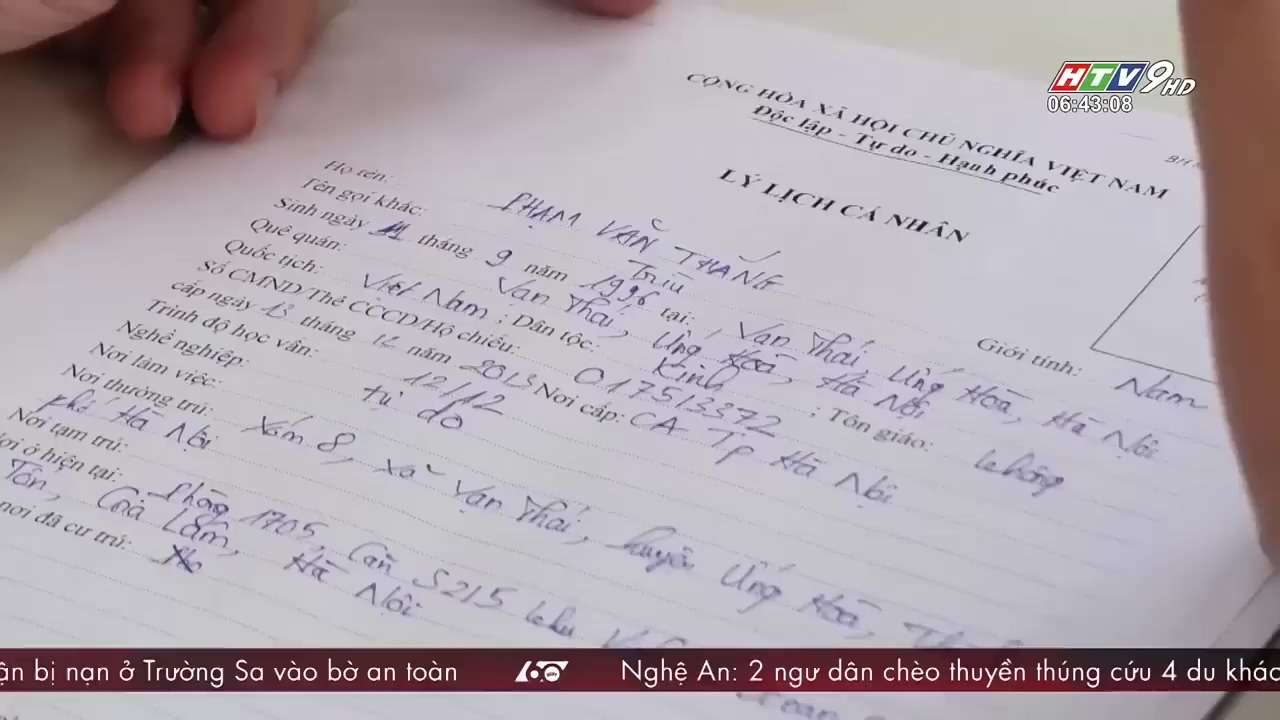 HTV9 HD
06:43:08
CỘNG HÒA XÃ HỘI CHỦ NGHĨA VIỆT NAM
Độc lập - Tự do - Hạnh phúc
LÝ LỊCH CÁ NHÂN
Họ tên: PHẠM VĂN THẮNG Giới tính: Nam
Tên gọi khác: Triù
Sinh ngày 11 tháng 9 năm 1996 tại: Vạn Thái, Ứng Hoà, Hà Nội
Quê quán: Vạn Thái, Ứng Hoà, Hà Nội
Quốc tịch: Việt Nam; Dân tộc: Kinh; Tôn giáo: không
Số CMND/Thẻ CCCD/Hộ chiếu: 017513372
cấp ngày 13 tháng 12 năm 2013 Nơi cấp: CA Tp Hà Nội
Trình độ học vấn: 12/12
Nghề nghiệp: tự do
Nơi làm việc:
Nơi thường trú: Xóm 8, xã Vạn Thái, huyện Ứng Hoà,
phố Hà Nội
Nơi tạm trú:
ơi ở hiện tại: Phòng 1705, Căn S215 khu
Tốn, Gia Lâm, Hà Nội
nơi đã cư trú:
ận bị nạn ở Trường Sa vào bờ an toàn 60 giây Nghệ An: 2 ngư dân chèo thuyền thúng cứu 4 du khác